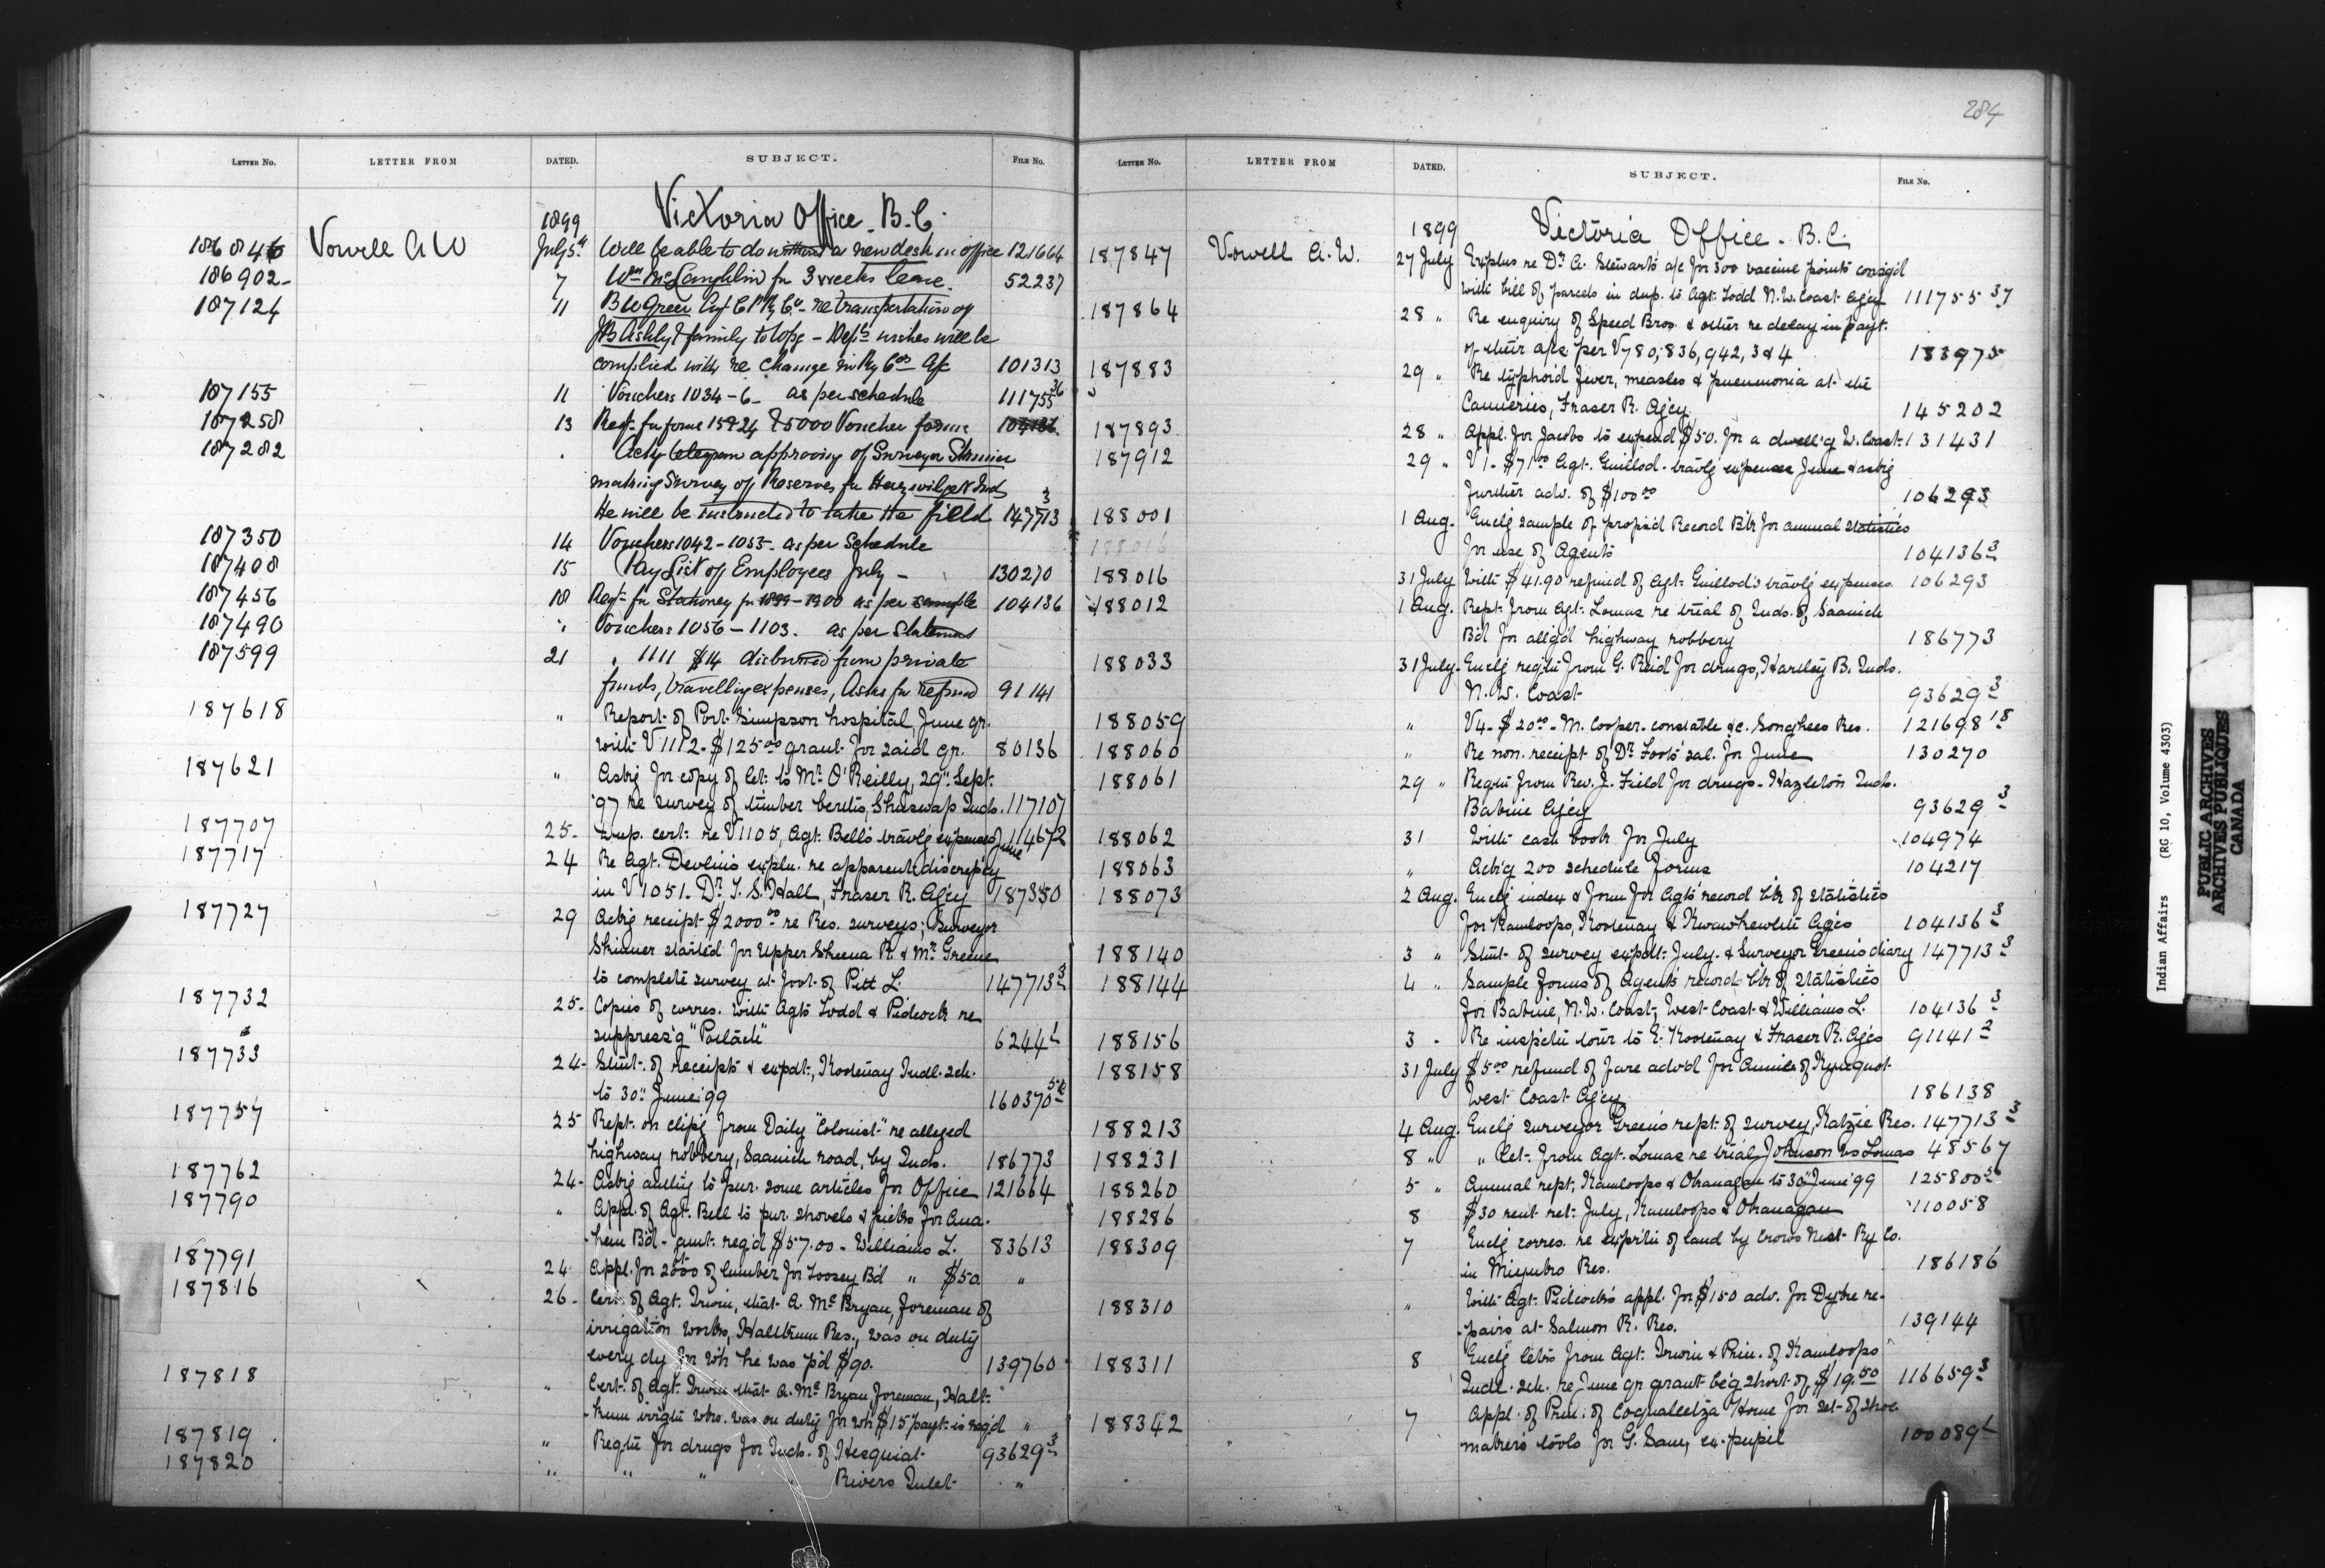 284
LETTER NO. LETTER FROM DATED. SUBJECT. FILE NO.
1899 Victoria Office. B.C.
186846 Vowell A W July 5th Will be able to do without a new desk in office 121664
186902 - 7 Wm McLaughlin for 3 weeks leave. 52237
187124 11 B W Greer Agt C P Ry Co - re transportation of
JB Ashby & family to - Depts wishes will be
complied with re change in Ry Cos 101313
187155 11 Vouchers 1034-6- as per schedule 111755 36
187258 13 Reqt. for forms 15 & 24 & 5000 Voucher forms 104136
187282 . Ackg telegram approving of Surveyor Skinner
making Survey of Reserves for Inds
He will be instructed to take the field 147713 3
187350 14 Vouchers 1042-1055- as per Schedule
187408 15 Pay List of Employees July - 130270
187456 18 Reqt. for Stationery for 1899-1900 as per sample 104136
187490 " Vouchers 1056-1103. as per Statement
187599 21 " 1111 $14 disbursed from private
funds, travelling expenses, Asks for refund 91141
187618 " Report of Port Simpson hospital, June qr.
with V 1112 - $125.00 grant for said qr. 80136
187621 " Askg for copy of let. to Mr. O'Reilly, 29" Sept.
'97 re survey of timber berths, Shuswap Inds. 117107
187707 25 - Dup. cert. re V1105, Agt. Bell's travlg expenses June 114672
187717 24 Re Agt. Devlin's expln. re apparent discrepcy
in V 1051. Dr. T. S. Hall, Fraser R. Agcy 187350
187727 29 Ackg receipt $2000.00 re Res. surveys; Surveyor
Skinner started for Upper Skeena R. & Mr. Greene
to complete survey at foot of Pitt L. 147713 3
187732 25 - Copies of corres. with Agts Todd & Pidcock re
suppress'g "Potlach" 6244 1
187733 24 - Stmt. of receipts & expdt., Kootenay Indl. sch.
to 30" June '99 160370 5
187757 25 Rept. on clip'g from Daily "Colonist" re alleged
highway robbery, Saanich road, by Inds. 186773
187762 24 - Askg authy to pur. some articles for Office 121664
187790 " Appl. of Agt. Bell to pur. shovels & picks for Ana-
-ham B'd - amt. req'd $57.00 - Williams L. 83613
187791 24 Appl. for 2000 of lumber for Toosey B'd " $50. "
187816 26 - Cert. of Agt. Irwin, that A. McBryan, foreman of
irrigation works, Halltkum Res., was on duty
every dy for wh he was p'd $90. 139760
187818 " Cert. of Agt. Irwin that A. McBryan foreman, Halt-
-kum irrigtn wks. was on duty for wh $15 payt. is req'd "
187819 " Reqtn for drugs for Inds. of Hesquiat 93629 3
187820 " " " Rivers Inlet "
LETTER NO. LETTER FROM DATED. SUBJECT. FILE NO.
1899 Victoria Office - B.C.
187847 Vowell A.W. 27 July Explns re Dr. A. Stewart's a/c for 300 vaccine points consig'd
with bill of parcels in dup. to Agt. Todd N.W. Coast Agcy 111755 37
187864 28 " Re enquiry of Speed Bros. & other re delay in payt.
of their a/cs per V780, 836, 942, 3 & 4 183975
187883 29 " Re typhoid fever, measles & pneumonia at the
Canneries, Fraser R. Agcy 145202
187893 28 " Appl. for Jacobs to expend $50. for a dwell'g W. Coast 131431
187912 29 " V1 - $71.00 Agt. Guillod - travlg expenses June & askg
further adv. of $100.00 106293
188001 1 Aug. Enclg sample of propos'd Record B'k for annual statistics
for use of Agents 104136 3
188016
188016 31 July With $41.90 refund of Agt. Guillod's travlg expenses 106293
188012 1 Aug. Rept. from Agt. Lomas re trial of Inds. of Saanich
B'd for alleg'd highway robbery 186773
188033 31 July Enclg reqtn from G. Reid for drugs, Hartley B. Inds.
N.W. Coast 93629 3
188059 " V4 - $20.00 - M. Cooper - constable &c. Songhees Res. 121698 18
188060 " Re non. receipt of Dr. Foot's sal. for June 130270
188061 29 " Reqtn from Rev. J. Field for drugs - Hazleton Inds.
Babine Agcy 93629 3
188062 31 With cash book for July 104974
188063 " Ack'g 200 schedule forms 104217
188073 2 Aug. Enclg index & form for Agts' record b'k of statistics
for Kamloops, Kootenay & Kwawkewlth Ag'cs 104136 3
188140 3 " Stmt. of survey expdt. July & Surveyor Greene's diary 147713 3
188144 4 " Sample forms of Agents record b'k of statistics
for Babine, N.W. Coast, West Coast & Williams L. 104136 3
188156 3 " Re inspctn tour to E. Kootenay & Fraser R. Ag'cs 91141 2
188158 31 July $5.00 refund of fare adv'd for Annie of Kyuquot
West Coast Agcy 186138
188213 4 Aug. Enclg surveyor Greene's rept. of survey, Katzie Res. 147713 3
188231 8 " " let. from Agt. Lomas re trial Johnson vs Lomas 48567
188260 5 " Annual rept., Kamloops & Okanagan to 30" June '99 125800
188286 8 $30 rent ret. July, Kamloops & Okanagan 110058
188309 7 Enclg corres. re exprtn of land by Crows Nest Ry Co.
in Res. 186186
188310 " With Agt. Pidcock's appl. for $150 adv. for Dyke re-
-pairs at Salmon R. Res. 139144
188311 8 Enclg letrs from Agt. Irwin & Prin. of Kamloops
Indl. sch. re June qr grant be'g short of $19.50 116659 3
188342 7 Appl. of Prin. of Coqualeetza Home for set of shoe
maker's tools for G. Sam, ex-pupil 100089 1
Indian Affairs (RG 10, Volume 4303)
PUBLIC ARCHIVES
ARCHIVES PUBLIQUES
CANADA